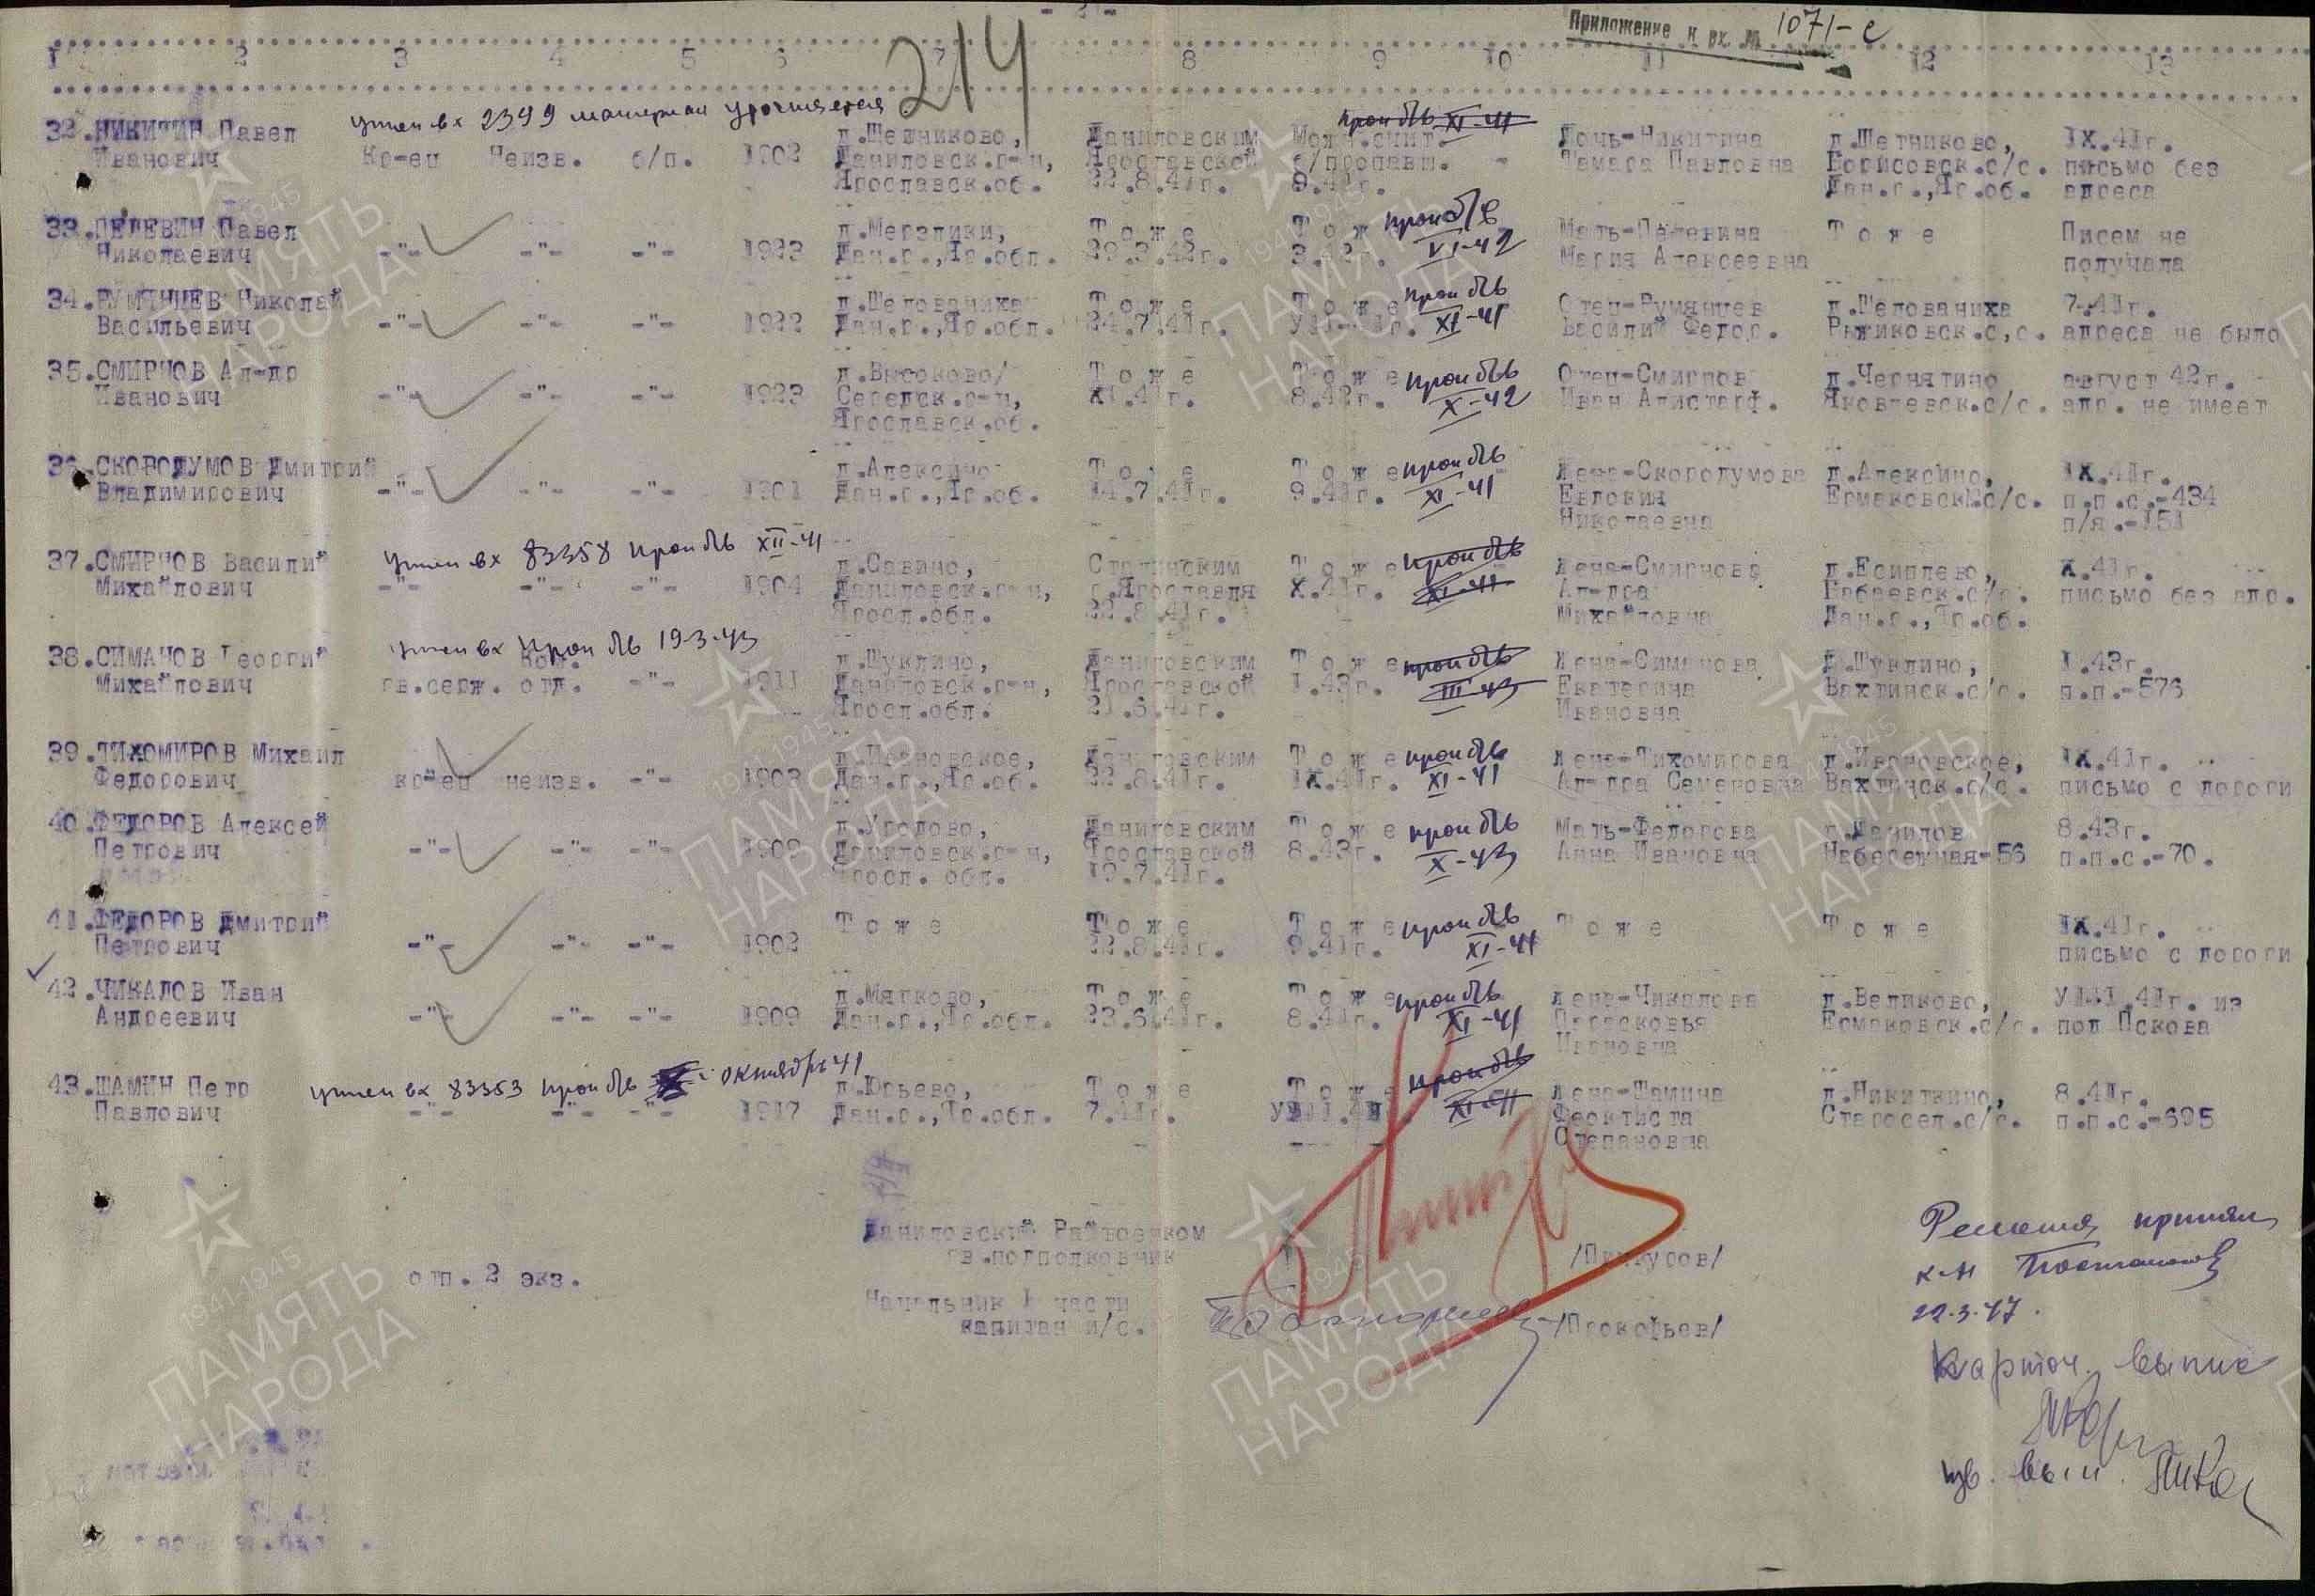 - 21-
Приложение к вх. № 1071-с
214
1 2 3 4 5 6 7 8 9 10 11 12 13
учтен вх 2399 материал уточняется
32.НИКИТИН Павел д.Шетниково, Даниловским Мож.счит. прои б/в XI-41 Дочь-Никитина д.Шетниково, IX.41г.
Иванович Кр-ец Неизв. б/п. 1902 Даниловск.р-н, Ярославской б/пропавш. - Тамара Павловна Борисовск.с/с. письмо без
Ярославск.об. 22.8.41г. 9.41г. Дан.р.,Яр.об. адреса
33.ПЕЛЕВИН Павел д.Мерзлики, Т о ж е Т о ж е проп б/в Мать-Пелевина Т о ж е Писем не
Николаевич -"- -"- -"- 1923 Дан.р.,Яр.обл. 29.3.42г. 3.42г. VI-42 Мария Алексеевна получала
34.РУМЯНЦЕВ Николай д.Шелованиха Т о ж е Т о ж е проп б/в Отец-Румянцев д.Шелованиха 7.41г.
Васильевич -"- -"- -"- 1922 Дан.р.,Яр.обл. 24.7.41г. XI-41 Василий Федор. Рыжиковск.с,с. адреса не было
35.СМИРНОВ Ал-др д.Высоково/ Т о ж е Т о ж е проп б/в Отец-Смирнов д.Чернятино август 42г.
Иванович -"- -"- -"- 1923 Середск.р-н, XI.41г. 8.42г. X-42 Иван Алистарф. Яковлевск.с/с. адр. не имеет
Ярославск.об.
36.СКОРОДУМОВ Дмитрий д.Алексино Т о ж е Т о ж е проп б/в Жена-Скородумова д.Алексино, IX.41г.
Владимирович -"- -"- -"- 1901 Дан.р.,Яр.об. 14.7.41г. 9.41г. XI-41 Евдокия Ермаковск.с/с. п.п.с.-434
Николаевна п/я.-151
учтен вх 83358 проп б/в XII-41
37.СМИРНОВ Василий д.Савино, Сталинским Т о ж е проп б/в Жена-Смирнова д.Есиплево, X.41г.
Михайлович -"- -"- -"- 1904 Даниловск.р-н, г.Ярославля X.41г. XI-41 Ал-дра с/с. письмо без адр.
Яросл.обл. 22.8.41г. Михайловна Дан.р.,Яр.об.
учтен вх проп б/в 19-3-43
38.СИМАНОВ Георгий Ком. д.Шуклино, Даниловским Т о ж е проп б/в Жена-Симанова д.Шуклино, 1.43г.
Михайлович гв.серж. отд. -"- 1911 Даниловск.р-н, Ярославской 1.43г. III-43 Екатерина Вахтинск.с/с. п.п.-576
Яросл.обл. 21.6.41г. Ивановна
39.ТИХОМИРОВ Михаил д.Ивановское, Даниловским Т о ж е проп б/в Жена-Тихомирова д.Ивановское, IX.41г.
Федорович кр-ец неизв. -"- 1903 Дан.р.,Яр.об. 22.8.41г. IX.41г. XI-41 Ал-дра Семеновна Вахтинск.с/с. письмо с дороги
40.ФЕДОРОВ Алексей д.Уголово, Даниловским Т о ж е проп б/в Мать-Федорова г.Данилов 8.43г.
Петрович -"- -"- -"- 1909 Даниловск.р-н, Ярославской 8.43г. X-43 Анна Ивановна Набережная-56 п.п.с.-70.
Яросл. обл. 19.7.41г.
41.ФЕДОРОВ Дмитрий Т о ж е Т о ж е Т о ж е проп б/в Т о ж е Т о ж е IX.41г.
Петрович -"- -"- -"- 1902 22.8.41г. 9.41г. XI-41 письмо с дороги
42.ЧИКАЛОВ Иван д.Мягково, Т о ж е Т о ж е проп б/в Жена-Чикалова д.Великово, УIII.41г. из
Андреевич -"- -"- -"- 1909 Дан.р.,Яр.обл. 23.6.41г. 8.41г. XI-41 Прасковья Ермаковск.с/с. под Пскова
Ивановна
учтен вх 83353 проп б/в октябрь 41
43.ШАМИН Петр д.Юрьево, Т о ж е Т о ж е проп б/в Жена-Шамина д.Никиткино, 8.41г.
Павлович -"- -"- -"- 1917 Дан.р.,Яр.обл. 7.41г. УIII.41 XI-41 Феоктиста Старосел.с/с. п.п.с.-695
Степановна
Даниловский Райвоенком
гв.подполковник
отп. 2 экз.
Начальник 1 части
капитан и/с. /Прокофьев/
Решения принял
к-н
22.3.47.
Карточ. выпис
изв. вып.
1941-1945
ПАМЯТЬ
НАРОДА